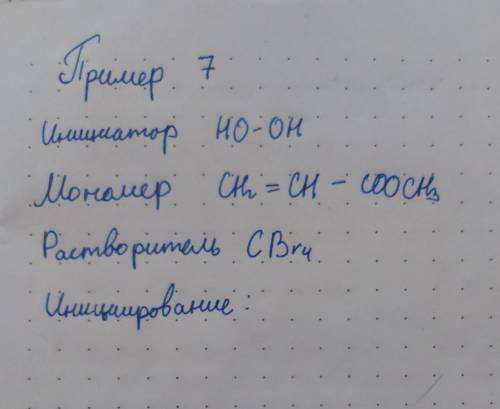 Пример 7
Инициатор HO-OH
Мономер CH₂ = CH - COOCH₃
Растворитель CBr₄
Инициирование: